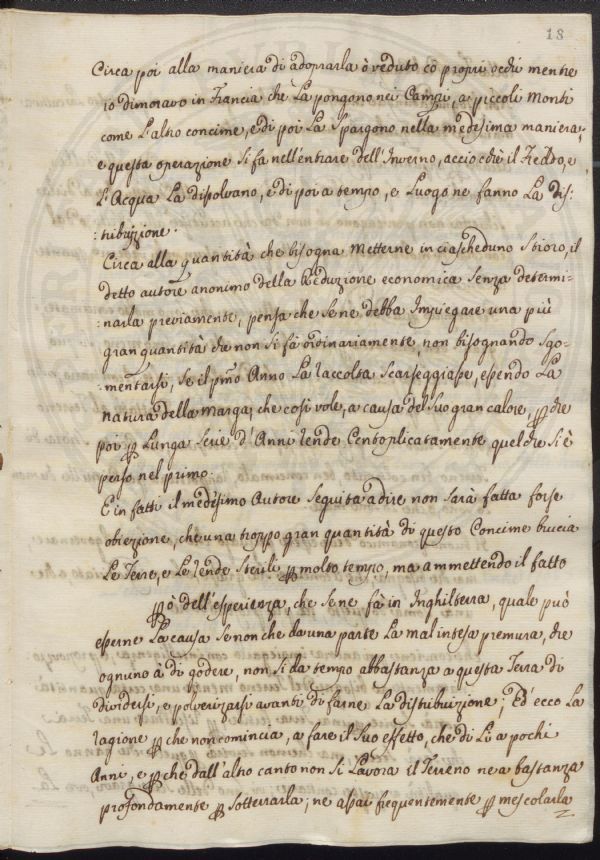 18
Circa poi alla maniera di adoprarla ò veduto co propri occhi mentre
io dimoravo in Francia che La pongono nei Campi, a piccoli Monti
come L'altro concime, e di poi La Spargono nella medesima maniera,
e questa operazione Si fa nell'entrare dell'Inverno, acciocchè il Freddo, e
L'Acqua La dissolvano, e di poi a tempo, e Luogo ne fanno La dis:
:tribuzione.
Circa alla quantità che bisogna metterne in ciascheduno Stioro, il
detto autore anonimo della Reduzione economica Senza determi:
:narla previamente, pensa che Se ne debba Impiegare una più
gran quantità che non Si fà ordinariamente, non bisognando Sgo:
:mentarsi, Se il pmo Anno La raccolta Scarseggiasse, essendo La
natura della Marga, che così vole, a causa del Suo gran calore, che
poi p Lunga Serie d'Anni rende Centoplicatamente quel che Si è
perso nel primo.
E in fatti il medesimo Autore Seguita a dire non Sarà fatta forse
obiezione, che una troppo gran quantità di questo Concime brucia
Le Terre, e Le rende Sterili p molto tempo, ma ammettendo il fatto
p ò dell'esperienza, che Se ne fà in Inghilterra, quale può
esserne La causa Se non che da una parte La mal intesa premura, che
ognuno à di godere, non Si da tempo abbastanza a questa Terra di
dividersi, e polverizarsi avanti di farne La distribuizione; Ed' ecco La
ragione p che non comincia, a fare il Suo effetto, che di Lì a pochi
Anni, e p che dall'altro canto non Si Lavora il Terreno ne a bastanza
profondamente p Sotterrarla; ne assai frequentemente p mescolarla